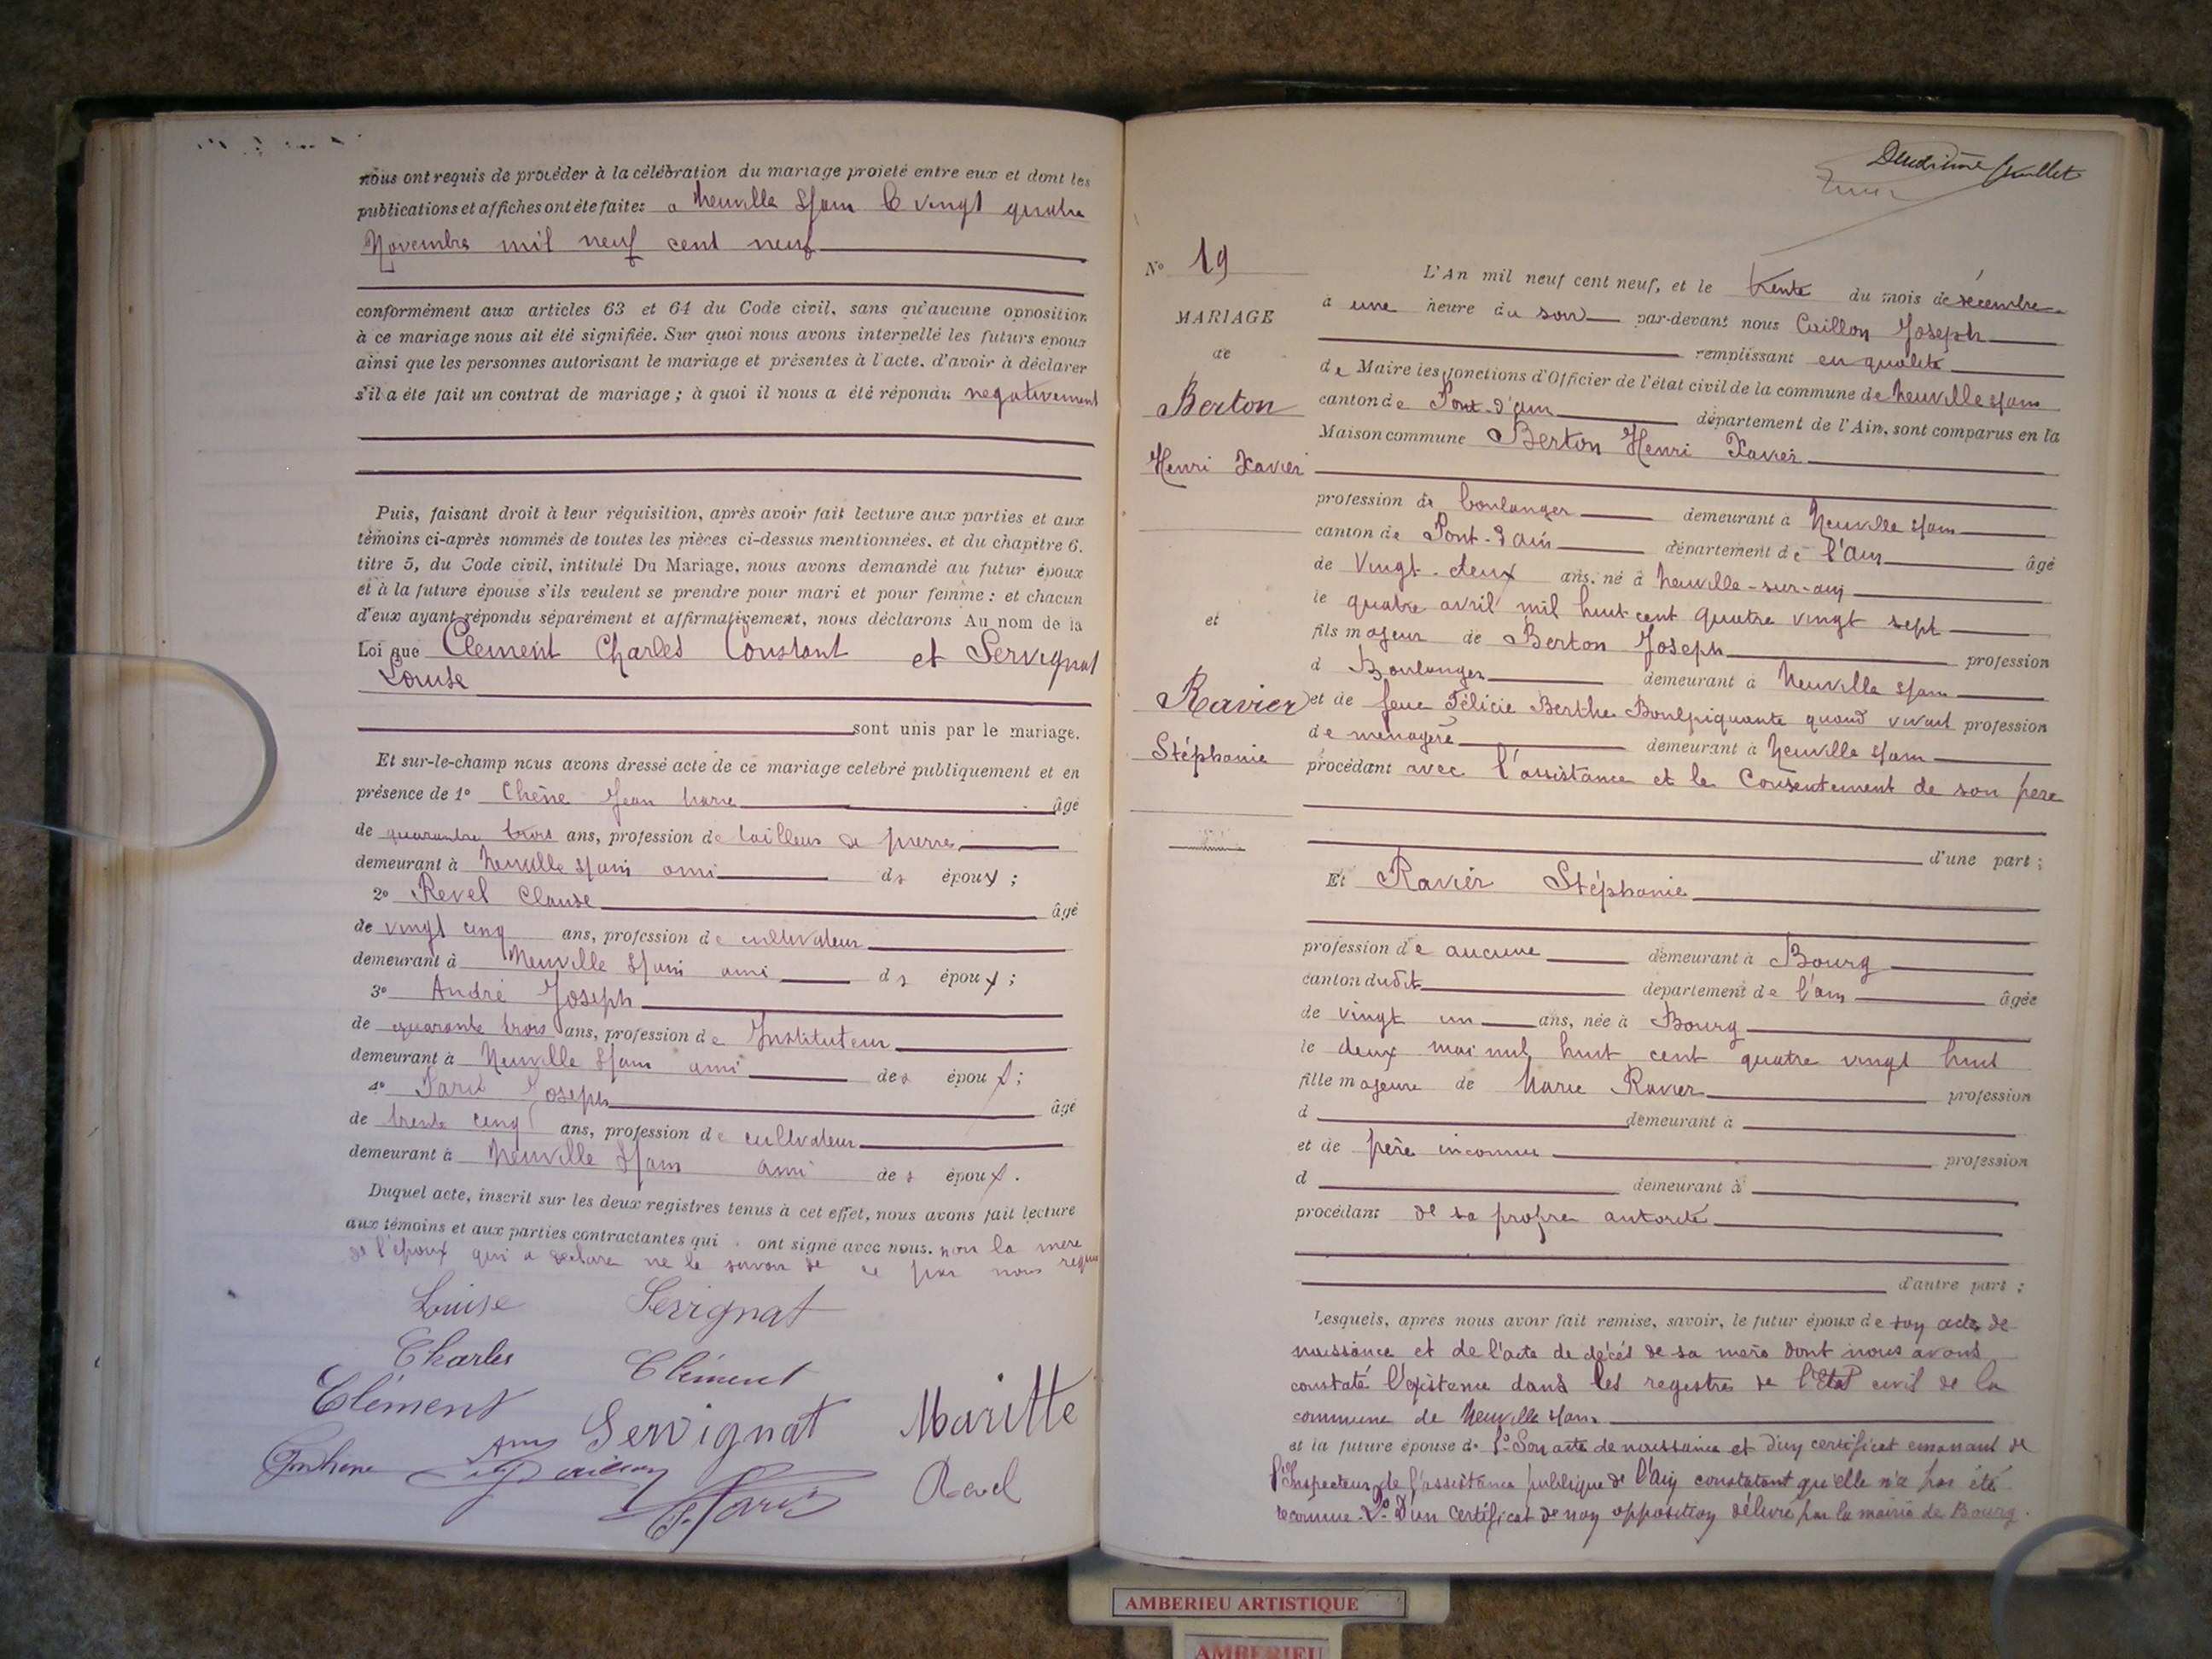 nous ont requis de procéder à la célébration du mariage projeté entre eux et dont les
publications et affiches ont été faites a Neuville s/ain le vingt quatre
Novembre mil neuf cent neuf
conformément aux articles 63 et 64 du Code civil, sans qu'aucune opposition
à ce mariage nous ait été signifiée. Sur quoi nous avons interpellé les futurs époux
ainsi que les personnes autorisant le mariage et présentes à l'acte, d'avoir à déclarer
s'il a été fait un contrat de mariage ; à quoi il nous a été répondu negativement
Puis, faisant droit à leur réquisition, après avoir fait lecture aux parties et aux
témoins ci-après nommés de toutes les pièces ci-dessus mentionnées, et du chapitre 6,
titre 5, du Code civil, intitulé Du Mariage, nous avons demandé au futur époux
et à la future épouse s'ils veulent se prendre pour mari et pour femme : et chacun
d'eux ayant répondu séparément et affirmativement, nous déclarons Au nom de la
Loi que Clement Charles Constant et Servignat
Louise
sont unis par le mariage.
Et sur-le-champ nous avons dressé acte de ce mariage célébré publiquement et en
présence de 1º Chêne Jean Marie âgé
de quarante trois ans, profession de tailleur de pierres
demeurant à Neuville s/ain ami ds époux ;
2º Revel Claude âgé
de vingt cinq ans, profession de cultivateur
demeurant à Neuville s/ain ami ds époux ;
3º André Joseph
de quarante trois ans, profession de Instituteur
demeurant à Neuville s/ain ami des époux ;
4º Paris Joseph âgé
de trente cinq ans, profession de cultivateur
demeurant à Neuville s/ain ami des époux.
Duquel acte, inscrit sur les deux registres tenus à cet effet, nous avons fait lecture
aux témoins et aux parties contractantes qui ont signé avec nous. non la mere
de l'époux qui a declare ne le savoir de ce par nous requis
Louise Servignat
Charles Clément
Clément Servignat Maritte
J. Paris Revel
Deuxième feuillet
Nº 19
MARIAGE
de
Berton
Henri Xavier
et
Ravier
Stéphanie
L'An mil neuf cent neuf, et le trente du mois de décembre
à une heure du soir par-devant nous Cuillon Joseph
remplissant en qualité
de Maire les fonctions d'Officier de l'état civil de la commune de Neuville s/ain
canton de Pont-d'ain département de l'Ain, sont comparus en la
Maison commune Berton Henri Xavier
profession de boulanger demeurant à Neuville s/ain
canton de Pont-d'ain département de l'ain âgé
de Vingt-deux ans, né à Neuville-sur-ain
le quatre avril mil huit cent quatre vingt sept
fils majeur de Berton Joseph profession
d Boulanger demeurant à Neuville s/ain
et de feue Félicie Berthe Boulpiquante quand vivait profession
de menagère demeurant à Neuville s/ain
procédant avec l'assistance et le Consentement de son père
d'une part ;
Et Ravier Stéphanie
profession de aucune demeurant à Bourg
canton dudit département de l'ain âgée
de vingt un ans, née à Bourg
le deux mai mil huit cent quatre vingt huit
fille majeure de Marie Ravier profession
d demeurant à
et de père inconnu profession
d demeurant à
procédant de sa propre autorité
d'autre part ;
Lesquels, après nous avoir fait remise, savoir, le futur époux de son acte de
naissance et de l'acte de décés de sa mère dont nous avons
constaté l'existence dans les registres de l'Etat civil de la
commune de Neuville s/ain
et la future épouse de 1º Son acte de naissance et d'un certificat emanant de
l'Inspecteur de l'assistance publique de l'Ain constatant qu'elle n'a pas été
reconnue. 2º D'un certificat de non opposition délivré par la mairie de Bourg.
AMBERIEU ARTISTIQUE
AMBERIEU